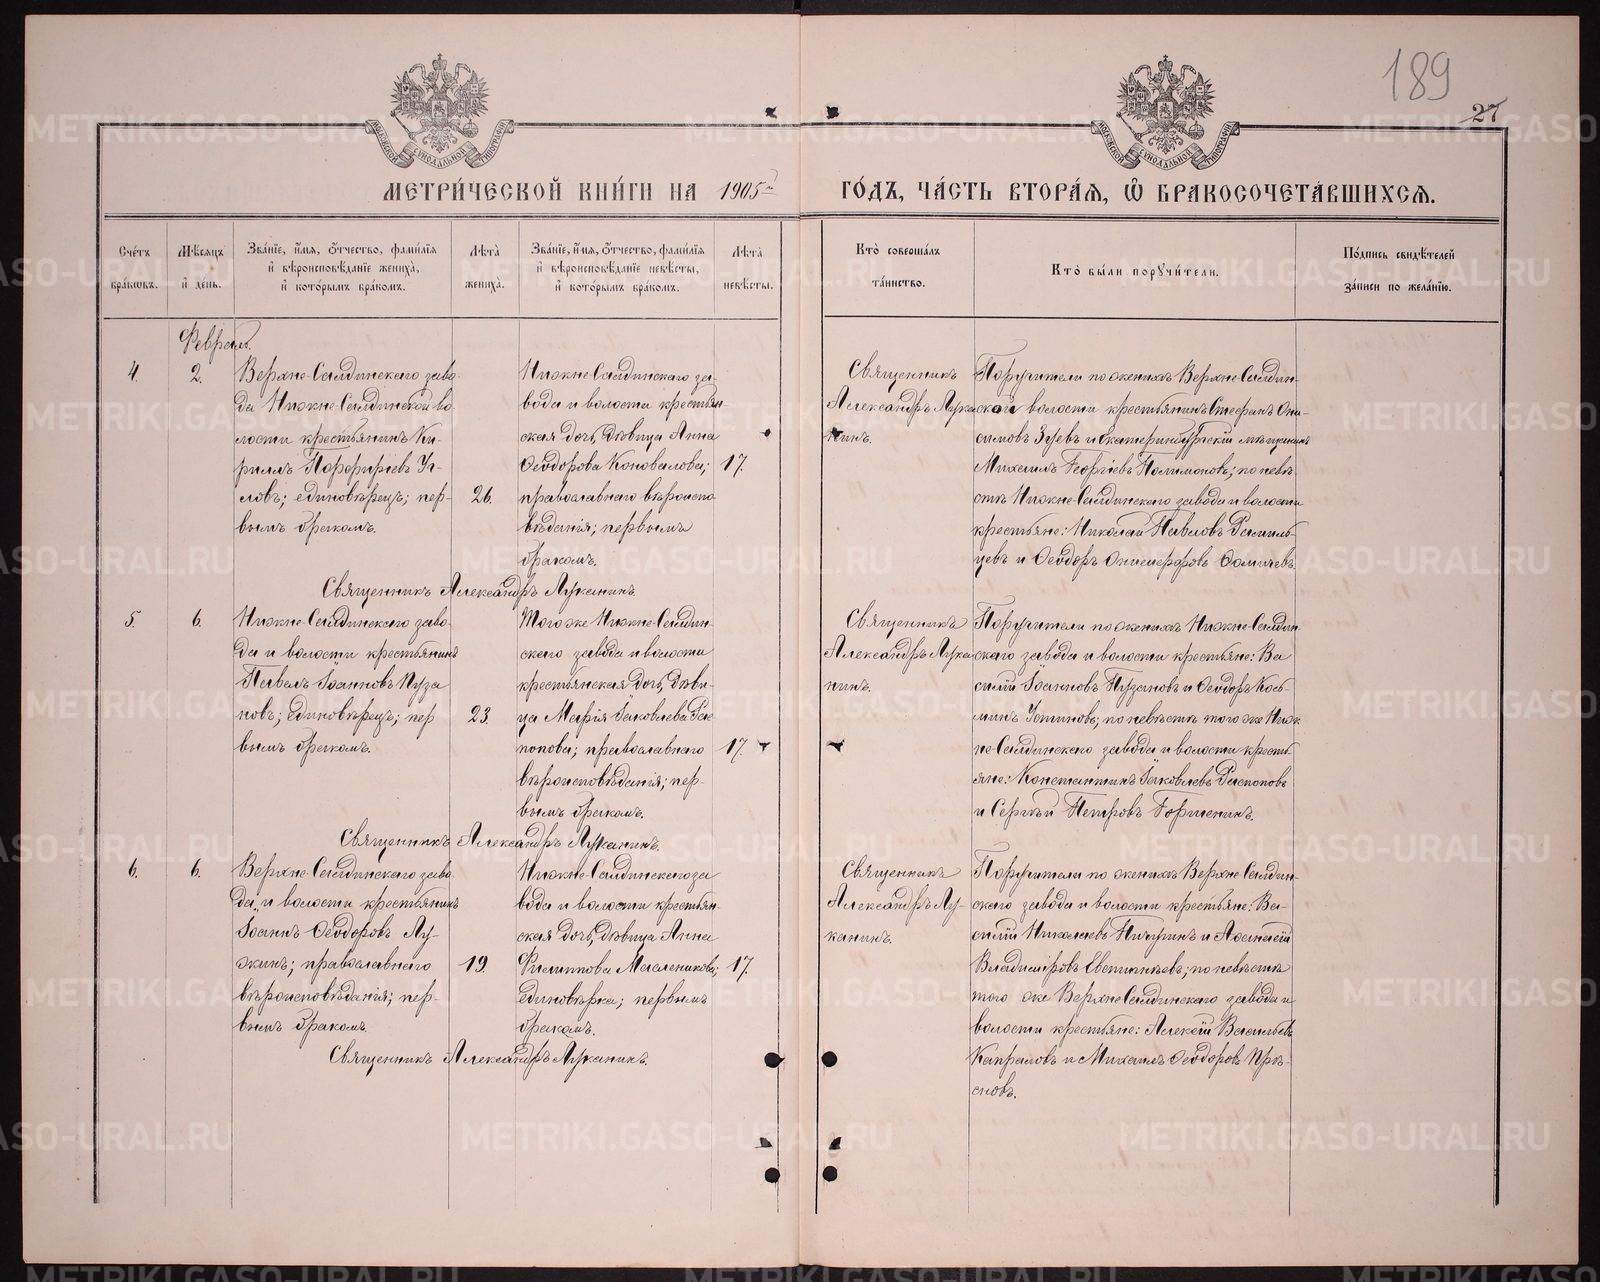 189
27
МЕТРИ́ЧЕСКОЙ КНИ́ГИ НА 1905й
ГО́ДЪ, ЧА́СТЬ ВТОРА́Я, Ѿ БРАКОСОЧЕТА́ВШИХСЯ.
Сче́тъ бра́ковъ.
Мѣ́сяцъ и҆ день.
Зва́нїе, и҆́мя, ѻ҆́тчество, фами́лїя
и҆ вѣроисповѣ́данїе жениха̀,
и҆ кото́рымъ бра́комъ.
Лѣта̀ жениха̀.
Зва́нїе, и҆́мя, ѻ҆́тчество, фами́лїя
и҆ вѣроисповѣ́данїе невѣ́сты,
и҆ кото́рымъ бра́комъ.
Лѣта̀ невѣ́сты.
Кто̀ соверша́лъ
та́инство.
Кто̀ бы́ли порꙋчи́тели.
По́дпись свидѣ́телей
за́писи по жела́нїю.
Февраль.
4.
2.
Верхне-Салдинскаго заво-
да Нижне-Салдинской во-
лости крестьянинъ Ки-
риллъ Порфиріевъ Уг-
ловъ; единовѣрецъ; пер-
вымъ бракомъ.
26.
Нижне-Салдинскаго за-
вода и волости крестьян-
ская дочь, дѣвица Анна
Ѳеодорова Коновалова;
православнаго вѣроиспо
вѣданія; первымъ
бракомъ.
17.
Священникъ
Александръ Лука
нинъ.
Поручители по женихѣ Верхне-Салдин-
ской волости крестьянинъ Стефанъ Они-
симовъ Зуевъ и екатеринбургскій мѣщанинъ
Михаилъ Георгіевъ Палимоновъ; по невѣ
стѣ Нижне-Салдинскаго завода и волости
крестьяне: Николай Павловъ Распиль-
цевъ и Ѳеодоръ Онисифоровъ Ѳомичевъ.
Священникъ Александръ Луканинъ.
5.
6.
Нижне-Салдинскаго заво-
да и волости крестьянинъ
Павелъ Іоанновъ Пуза
новъ; единовѣрецъ; пер
вымъ бракомъ.
23.
Того же Нижне-Салдин-
скаго завода и волости
крестьянская дочь, дѣви-
ца Марія Іаковлева Рас
попова; православнаго
вѣроисповѣданія; пер-
вымъ бракомъ.
17.
Священникъ
Александръ Лука
нинъ.
Поручители по женихѣ Нижне-Салдин-
скаго завода и волости крестьяне: Ва
силій Іоанновъ Пузановъ и Ѳеодоръ Кось-
минъ Устиновъ; по невѣстѣ того же Ниж
не-Салдинскаго завода и волости кресть-
яне: Константинъ Іаковлевъ Распоповъ
и Сергѣй Петровъ Горшенинъ.
Священникъ Александръ Луканинъ.
6.
6.
Верхне-Салдинскаго заво-
да и волости крестьянинъ
Іоаннъ Ѳеодоровъ Лу-
жинъ; православнаго
вѣроисповѣданія; пер-
вымъ бракомъ.
19.
Нижне-Салдинскаго за
вода и волости крестьян-
ская дочь, дѣвица Анна
Филиппова Масленикова;
единовѣрка; первымъ
бракомъ.
17.
Священникъ
Александръ Лу-
канинъ.
Поручители по женихѣ Верхне-Салдин-
скаго завода и волости крестьяне: Ва-
силій Николаевъ Пичугинъ и Аѳанасій
Владиміровъ Евстигнѣевъ; по невѣстѣ
того же Верхне-Салдинскаго завода и
волости крестьяне: Алексѣй Васильевъ
Капраловъ и Михаилъ Ѳеодоровъ Прѣ-
сновъ.
Священникъ Александръ Луканинъ.
METRIKI.GASO-URAL.RU